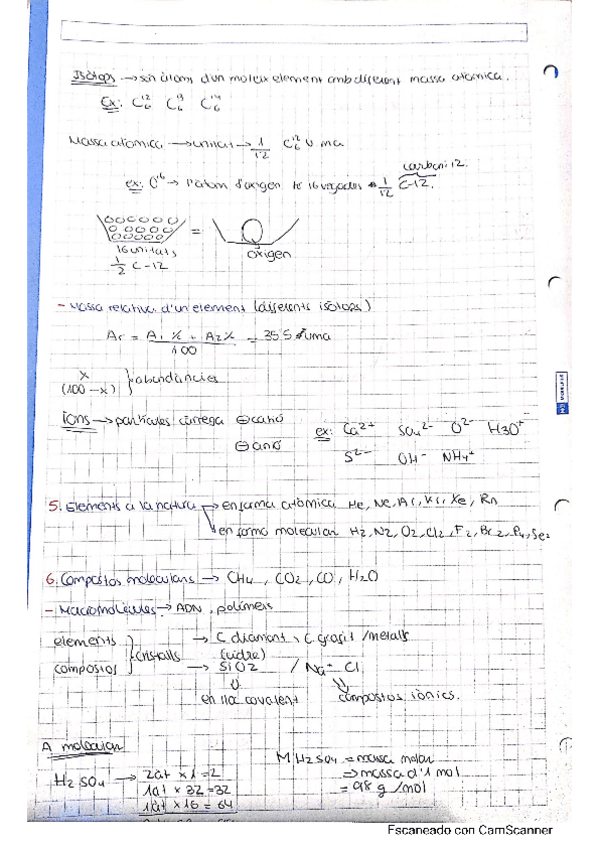 Isòtops → són àtoms d'un mateix element amb diferent massa atòmica.
Ex: C₆¹² C₆¹³ C₆¹⁴
Massa atòmica → unitat → 1/12 C₆¹² u ma
carboni 12.
ex: O¹⁶ → l'àtom d'oxigen té 16 vegades 1/12 C-12.
=
16 unitats
oxigen
1/2 C-12
- Massa relativa d'un element (diferents isòtops)
Ar = A₁ X + A₂ X / 100 = 35'5 uma
X
(100-x) } abundàncies
ions → partícules càrrega ⊕ catió
⊖ anió
ex: Ca²⁺ SO₄²⁻ O²⁻ H3O⁺
S²⁻ OH⁻ NH₄⁺
5. Elements a la natura → en forma atòmica He, Ne, Ar, Kr, Xe, Rn
en forma molecular H2, N2, O2, Cl2, F2, Br2, P4, Se2
6. Compostos moleculars → CH4, CO2, CO, H2O
- Macromolècules → ADN, polímers
elements → C diamant, C grafit / metalls
} cristalls (vidre)
compostos → SiO2 / Na⁺ Cl
enllaç covalent compostos iònics.
A molecular
H2SO4 → 2at × 1 = 2
1at × 32 = 32
1at × 16 = 64
M H2SO4 = massa molar
⇒ massa d'1 mol
= 98 g/mol
Escaneado con CamScanner